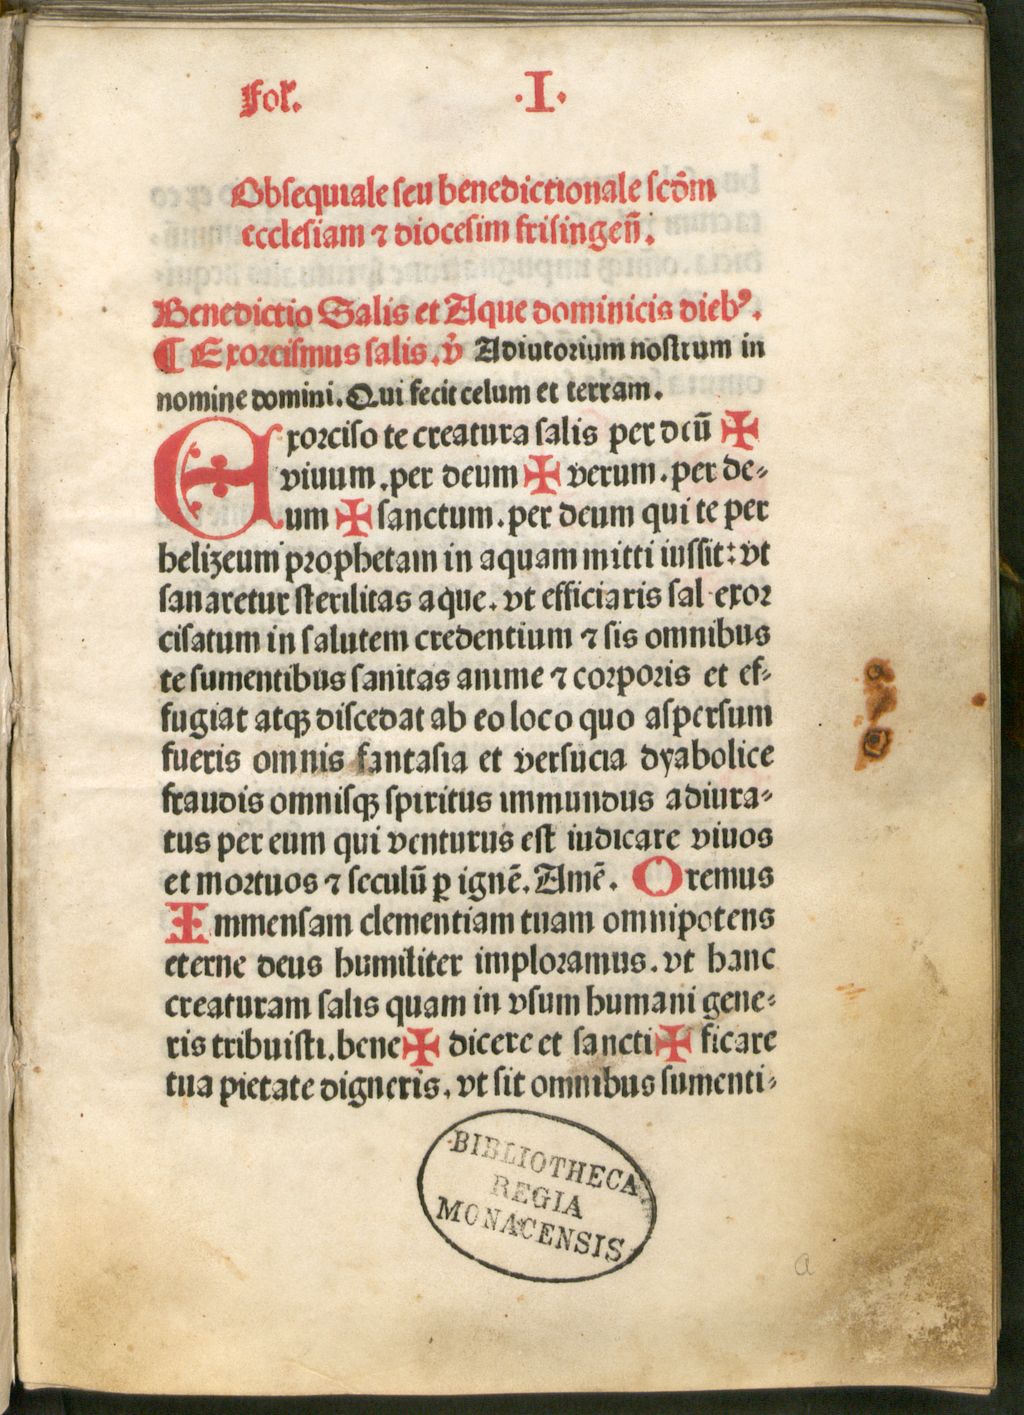 Fol. .I.
Obsequiale seu benedictionale scd̄m
ecclesiam ⁊ diocesim frisingen̄.
Benedictio Salis et Aque dominicis dieb⁹.
¶ Exorcismus salis. v̄ Adiutorium nostrum in
nomine domini. Qui fecit celum et terram.
Exorciso te creatura salis per deū ✠
viuum .per deum ✠ verum .per de⸗
um ✠ sanctum .per deum qui te per
helizeum prophetam in aquam mitti iussit: vt
sanaretur sterilitas aque. vt efficiaris sal exor
cisatum in salutem credentium ⁊ sis omnibus
te sumentibus sanitas anime ⁊ corporis et ef⸗
fugiat atqꝫ discedat ab eo loco quo aspersum
fueris omnis fantasia et versucia dyabolice
fraudis omnisqꝫ spiritus immundus adiura⸗
tus per eum qui venturus est iudicare viuos
et mortuos ⁊ seculū ꝑ ignē. Amē. Oremus
Immensam clementiam tuam omnipotens
eterne deus humiliter imploramus. vt hanc
creaturam salis quam in vsum humani gene⸗
ris tribuisti. bene ✠ dicere et sancti ✠ ficare
tua pietate digneris. vt sit omnibus sumenti⸗
BIBLIOTHECA
REGIA
MONACENSIS
a